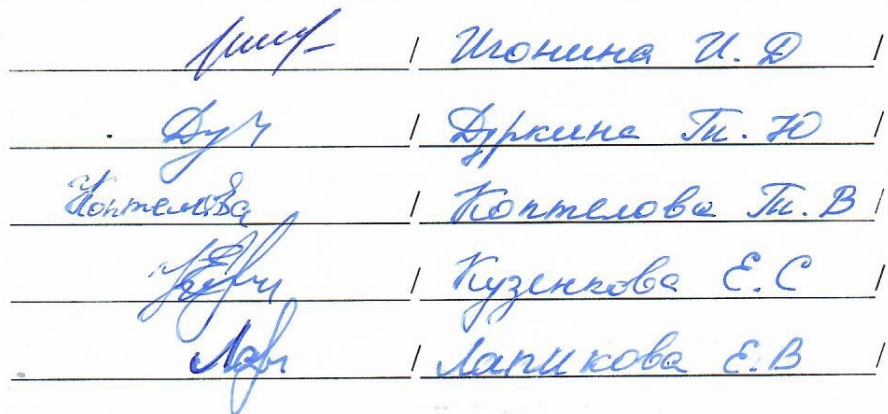 / Игонина И. Д /
/ Дуркина Т. Ю /
Коптелова / Коптелова Т. В /
/ Кузенкова Е. С /
/ Лапикова Е. В /